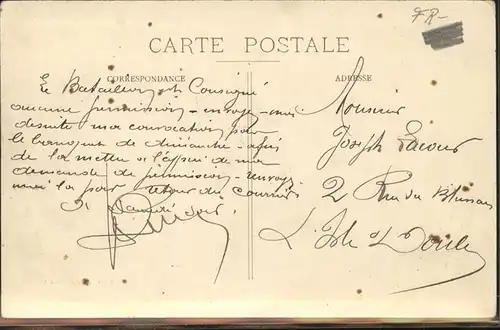 FR-
CARTE POSTALE
CORRESPONDANCE
ADRESSE
Le Bataillon est Consigné
aucune permission - envoye - moi
desuite ma convocation pour
le banquet de dimanche - afin
de la mettre à l'appui de ma
demande de permission - envoye
moi la par retour du courrier
Samedi soir
Monsieur
Joseph
2 Rue du
L'Isle s/ Doubs